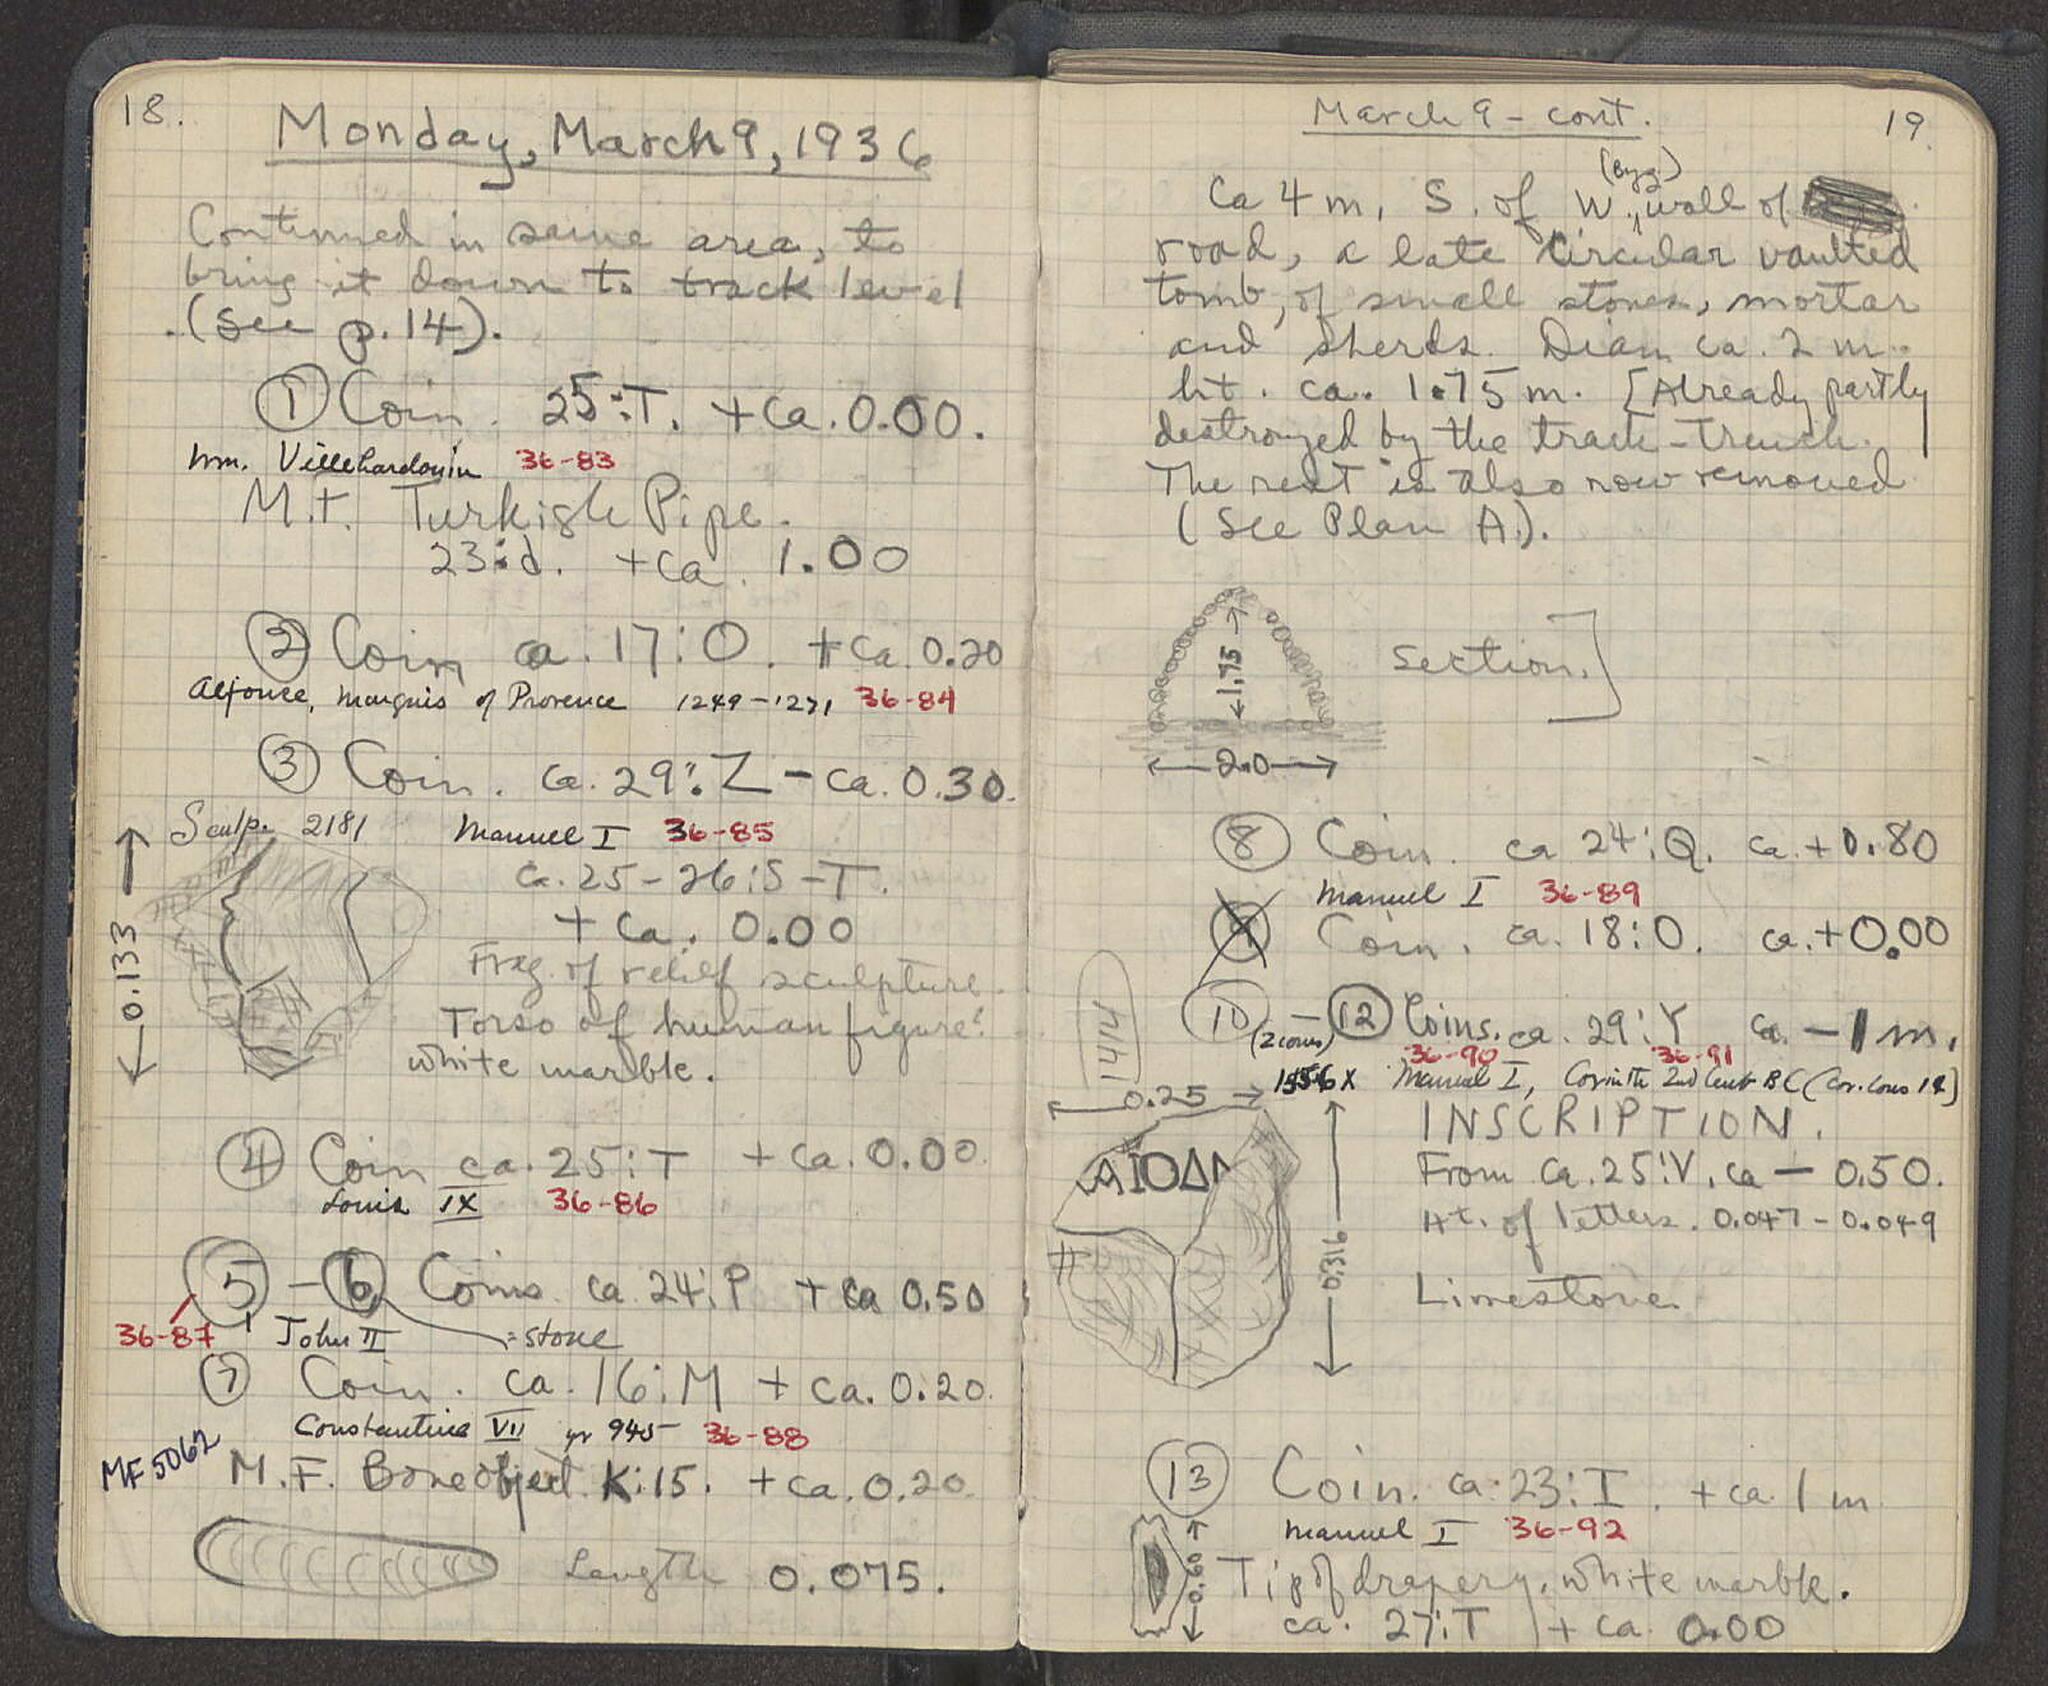 18.
Monday, March 9, 1936
Continued in same area, to
bring it down to track level
(See p. 14).
① Coin. 25:T. + ca. 0.00.
Wm. Villehardouin 36-83
M.F. Turkish Pipe.
23:d. + ca. 1.00
② Coin ca. 17:O. + ca. 0.20
Alfonce, marquis of Provence 1249-1271 36-84
③ Coin. ca. 29:Z - ca. 0.30.
Sculp. 2181 Manuel I 36-85
ca. 25-26:S-T.
+ ca. 0.00
Frag. of relief sculpture.
Torso of human figure?
White marble.
0.133
④ Coin ca. 25:T + ca. 0.00.
Louis IX 36-86
⑤ - ⑥ Coins ca. 24:P + ca 0.50
36-87 John II = stone
⑦ Coin. ca. 16:M + ca. 0.20.
Constantine VII yr 945- 36-88
MF 5062
M.F. Bone object. K:15. + ca. 0.20.
Length 0.075.
March 9 - cont. 19.
(Byz)
Ca 4 m. S. of W. wall of
road, a late circular vaulted
tomb, of small stones, mortar
and sherds. Diam ca. 2 m.
ht. ca. 1.75 m. [Already partly
destroyed by the track-trench.
The rest is also now removed
(See Plan A.).
1.75
Section.]
2.0
⑧ Coin. ca 24:Q. ca. + 0.80
Manuel I 36-89
⑨ Coin. ca. 18:O. ca. + 0.00
⑩ - ⑫ Coins. ca. 29:Y ca. - 1 m.
(2 coins) 36-90 36-91
Manuel I, Corinth 2nd Cent BC (Cor. Coins 14)
0.25
INSCRIPTION.
ΑΙΟΔΛ
From ca. 25:V. ca - 0.50.
Ht. of letters. 0.047 - 0.049
0.316
Limestone.
⑬ Coin. ca. 23:I. + ca. 1 m
Manuel I 36-92
0.90
Tip of drapery. White marble.
ca. 27:T + ca. 0.00